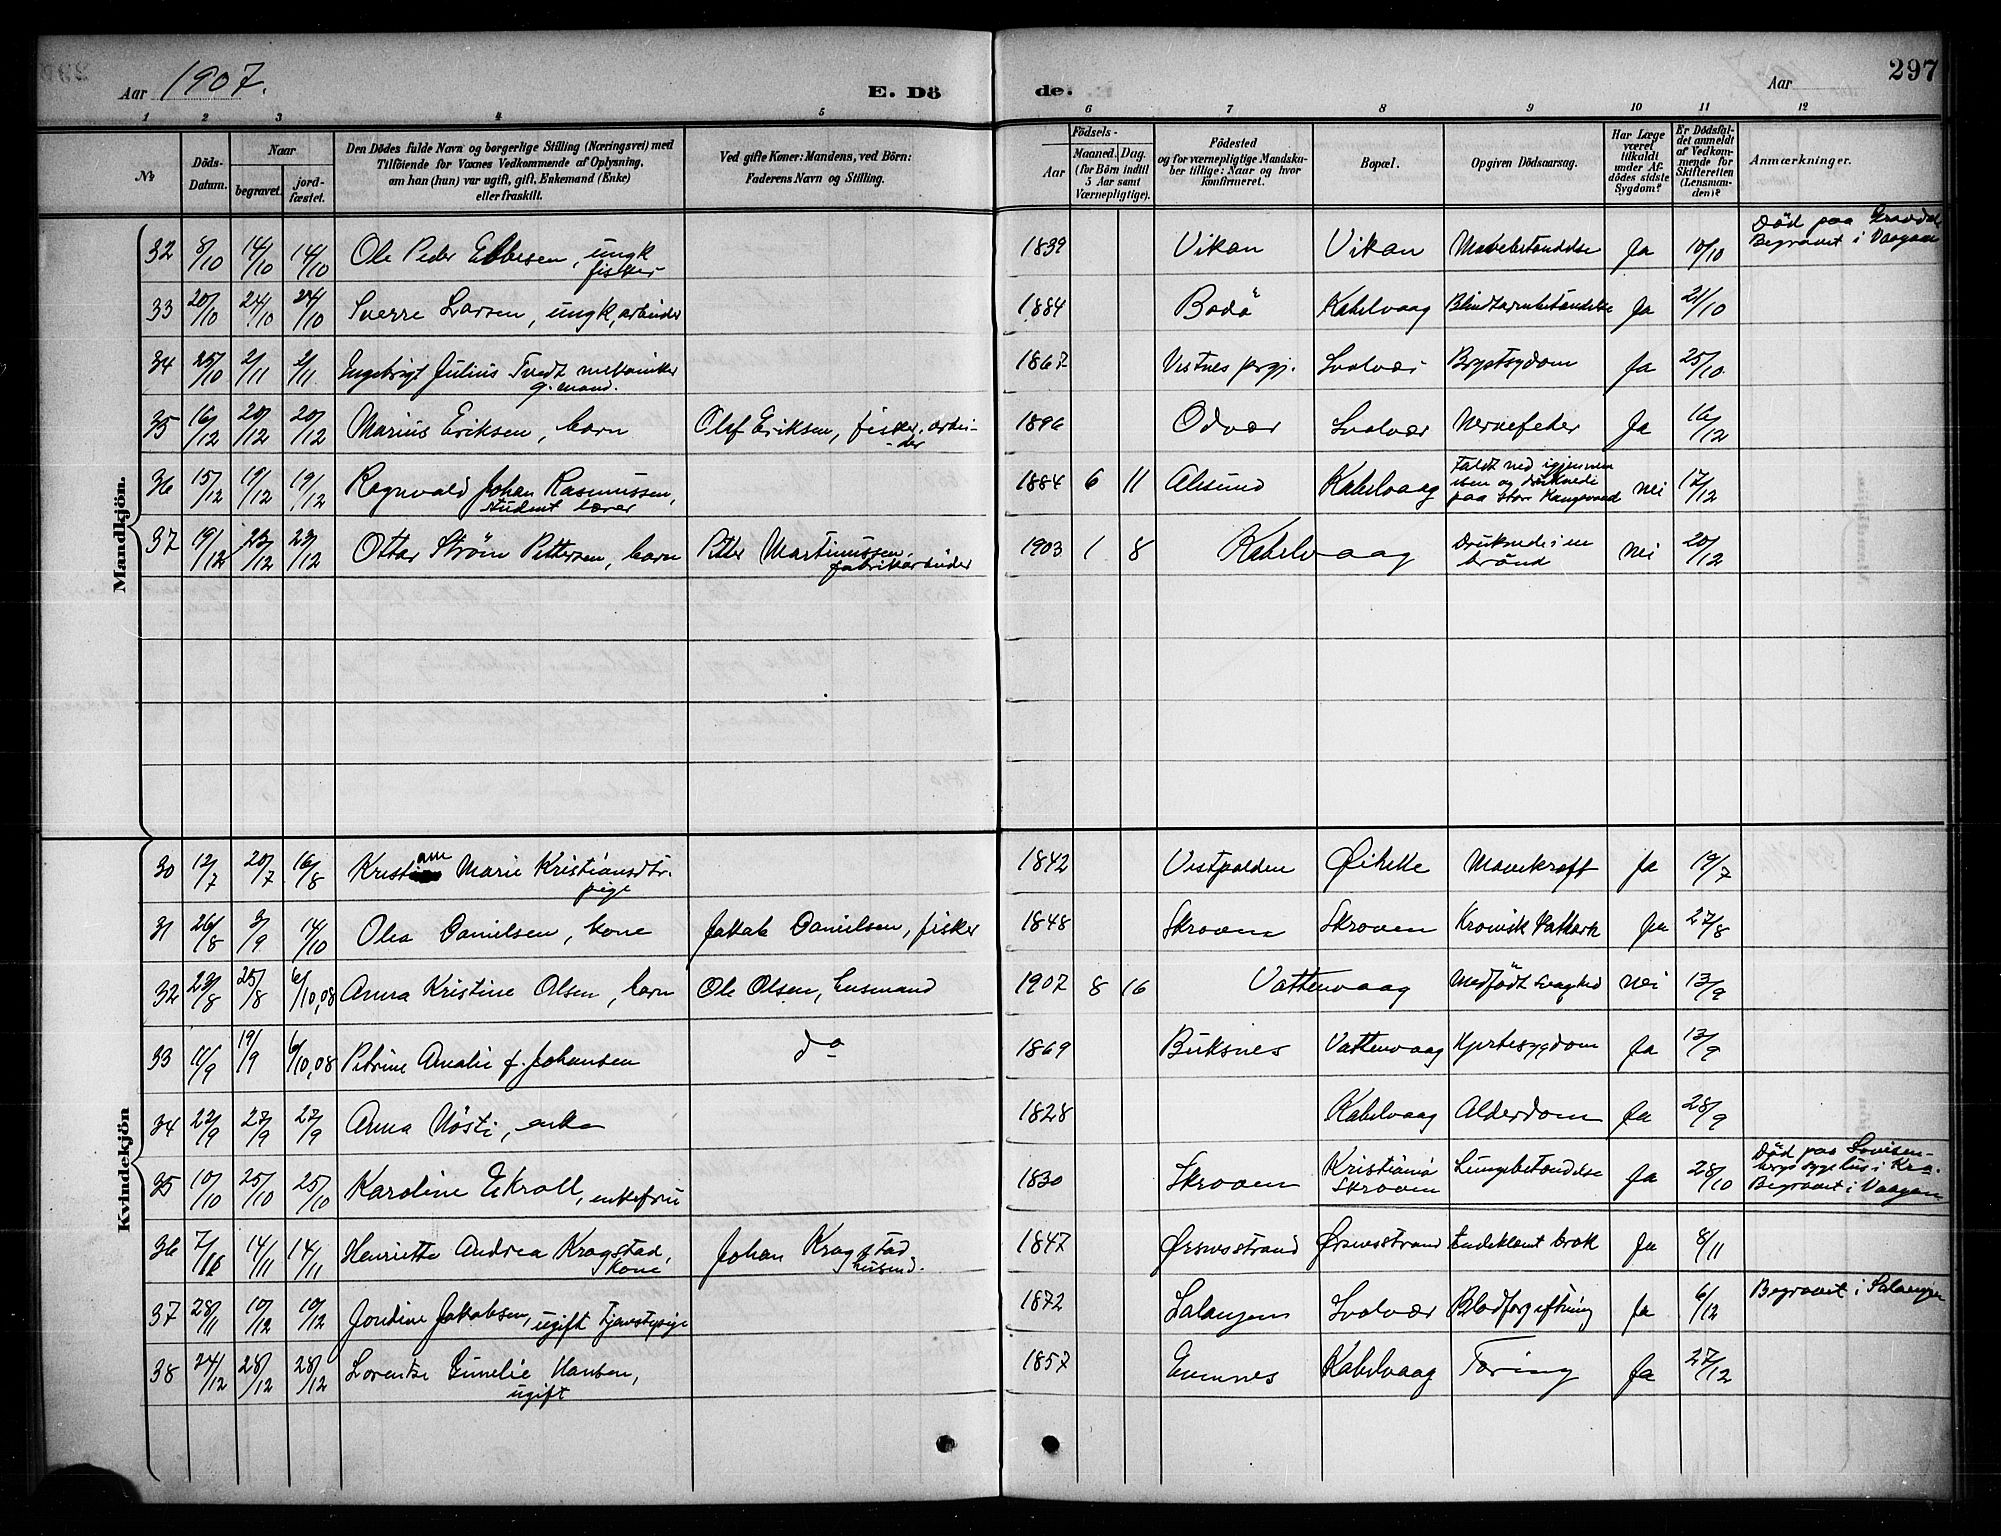 297
Aar 1907. E. Dö de. Aar
1 2 3 4 5 6 7 8 9 10 11 12
No
Döds-Datum.
Naar
begravet.
jord-fæstet.
Den Dödes fulde Navn og borgerlige Stilling (Næringsvei) med
Tilföiende for Voxnes Vedkommende af Oplysning,
om han (hun) var ugift, gift, Enkemand (Enke)
eller fraskilt.
Ved gifte Koner: Mandens, ved Börn:
Faderens Navn og Stilling.
Födsels-
Aar
Maaned. Dag.
(for Börn indtil
5 Aar samt
Værnepligtige).
Födested
og for værnepligtige Mandska-
ber tillige: Naar og hvor
konfirmeret.
Bopæl.
Opgiven Dödsaarsag.
Har Læge
været
tilkaldt
under Af-
dödes sidste
Sygdom?
Er Dödsfal-
det anmeldt
af Vedkom-
mende for
Skifteretten
(Lensman-
den)?
Anmærkninger.
Mandkjön.
32 8/10 14/10 14/10 Ole Peder Ebbesen, ungk fisker 1839 Vikan Vikan Mavebetændelse Ja 10/10 Död paa Gravdal Begravet i Vaagan
33 20/10 24/10 24/10 Sverre Larsen, ungk, arbeider 1884 Bodö Kabelvaag Blindtarmbetændelse Ja 21/10
34 25/10 2/11 2/11 Ingebrigt Julius Tvedt mekaniker g. mand. 1867 Vestnes prgj. Svolvær Brystsygdom Ja 25/10
35 16/12 20/12 20/12 Marius Eriksen, barn Olaf Eriksen, fisker, arbei-der 1896 Odvær Svolvær Nervefeber Ja 16/12
36 15/12 19/12 19/12 Ragnvald Johan Rasmussen, student lærer 1884 6 11 Alesund Kabelvaag Faldt ned igjennem isen og druknede paa Store Kongsvand nei 17/12
37 19/12 23/12 23/12 Ottar Strøm Pettersen, barn Petter Martinussen, fabrikarbeider 1903 1 8 Kabelvaag Druknede i en brönd Nei 20/12
Kvindekjön
30 12/7 20/7 16/8 Kristiane Marie Kristiansdtr. pige 1842 Vestpolden Øihelle Mavekræft Ja 19/7
31 26/8 3/9 14/10 Olea Danielsen, kone Jakob Danielsen, fisker 1848 Skroven Skroven Kronisk Katharh Ja 27/8
32 23/8 25/8 6/10,08 Anna Kristine Olsen, barn Ole Olsen, Husmand 1907 8 16 Vattervaag Medfödt Svaghed Nei 13/9
33 11/9 19/9 6/10,08 Petrine Amalie f. Johansen do 1869 Buksnes Vattervaag Hjertesygdom Ja 13/9
34 22/9 27/9 27/9 Anna Hösti, enke 1828 Kabelvaag Alderdom Ja 28/9
35 10/10 25/10 25/10 Karoline Ekroll, enkefru 1830 Skroven Kristiania Skroven Lungebetændelse Ja 28/10 Död paa Lovisen-bergs sygehus i Kra. Begravet i Vaagan
36 7/11 14/11 14/11 Henriette Andrea Kragstad, kone Johan Kragstad husmd. 1847 Ørsnesstrand Ørsnesstrand Indeklemt brok Ja 8/11
37 28/11 10/12 10/12 Jordine Jakobsen, ugift Tjenstepige 1872 Salangen Svolvær Blodforgiftning Ja 6/12 Begravet i Salangen
38 24/12 28/12 28/12 Lorentse Emelie Hansen, ugift 1857 Evenes Kabelvaag Tæring Ja 27/12